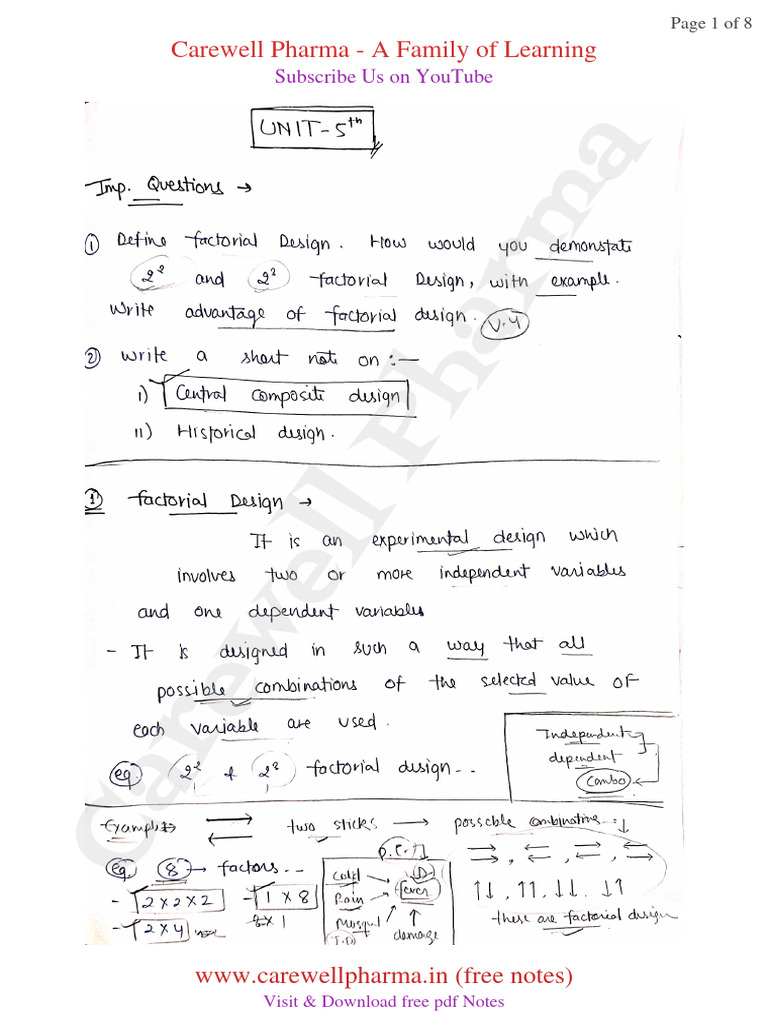 Page 1 of 8
Carewell Pharma - A Family of Learning
Subscribe Us on YouTube
UNIT-5th
Imp. Questions →
① Define factorial Design. How would you demonstate
2² and 2² factorial Design, with example.
Write advantage of factorial design. V.4
② Write a short note on :—
I) Central composite design
II) Historical design.
① factorial Design →
It is an experimental design which
involves two or more independent variables
and one dependent variables
- It is designed in such a way that all
possible combinations of the selected value of
each variable are used.
eg. 2² & 2² factorial design..
Independent
dependent
Combo
Example → two sticks → possible combinations
eg. 8 → factors..
- 2 x 2 x 2 - 1 x 8
- 2 x 4
Rain
damage
→→, →←, ←→, ←←
↑↓, ↑↑, ↓↓, ↓↑
these are factorial design
www.carewellpharma.in (free notes)
Visit & Download free pdf Notes
Carewell Pharma